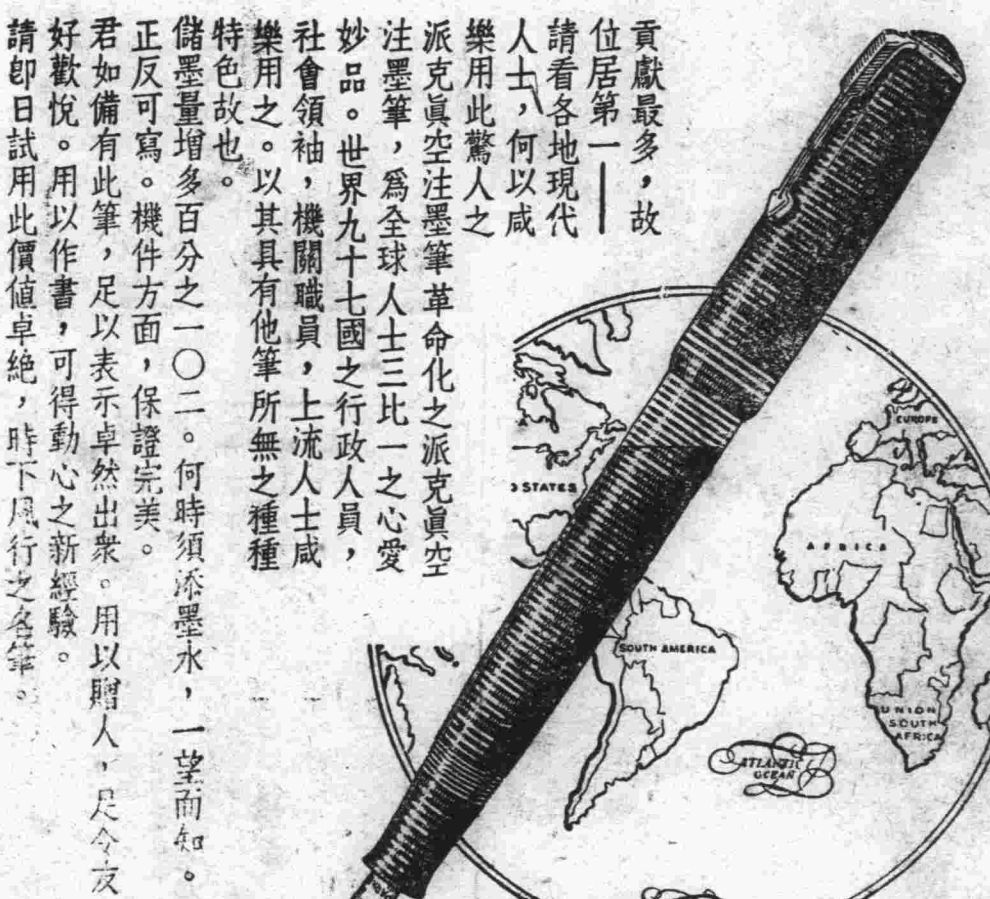 貢獻最多,故
位居第一——
請看各地現代
人士,何以咸
樂用此驚人之
派克眞空注墨筆革命化之派克眞空
注墨筆,爲全球人士三比一之心愛
妙品。世界九十七國之行政人員,
社會領袖,機關職員,上流人士咸
樂用之。以其具有他筆所無之種種
特色故也。
儲墨量增多百分之一〇二。何時須添墨水,一望而知。
正反可寫。機件方面,保證完美。
君如備有此筆,足以表示卓然出衆。用以贈人,足令友
好歡悅。用以作書,可得動心之新經驗。
請卽日試用此價値卓絶,時下風行之名筆。
EUROPE
STATES
AFRICA
SOUTH AMERICA
UNION
SOUTH
AFRICA
ATLANTIC
OCEAN